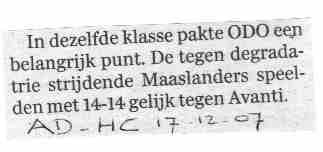 In dezelfde klasse pakte ODO een
belangrijk punt. De tegen degrada-
trie strijdende Maaslanders speel-
den met 14-14 gelijk tegen Avanti.
AD-HC 17-12-07